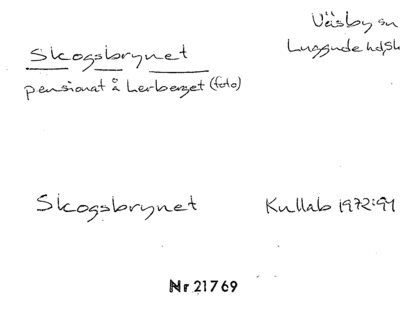 Väsby sn
Skogsbrynet
Luggude hd, Sk
pensionat å Lerberget (foto)
Skogsbrynet
Kullab 1972:91
Nr 21769